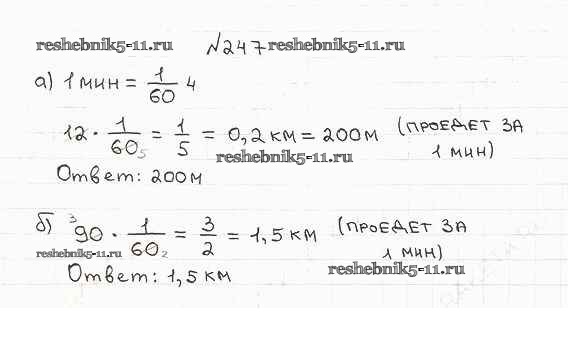 reshebnik5-11.ru №247 reshebnik5-11.ru
а) 1 мин = 1/60 ч
12 · 1/60 5 = 1/5 = 0,2 км = 200 м (проедет за 1 мин)
reshebnik5-11.ru
Ответ: 200 м
б) 3 90 · 1/60 2 = 3/2 = 1,5 км (проедет за 1 мин)
reshebnik5-11.ru
Ответ: 1,5 км
reshebnik5-11.ru